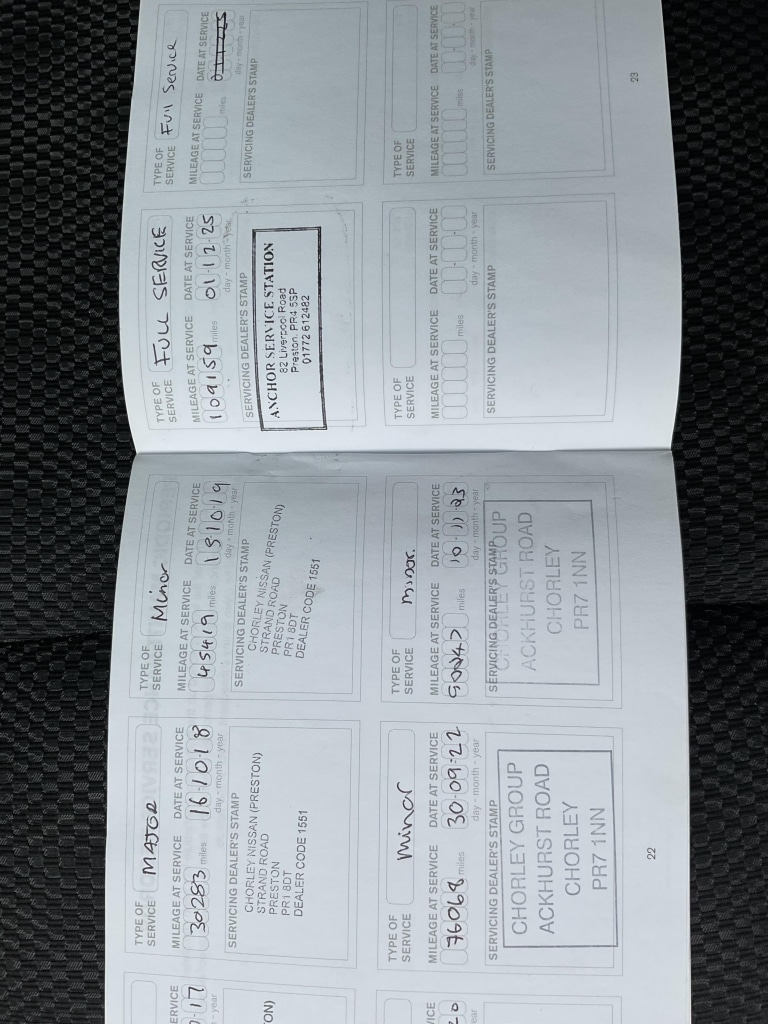 ERVICE
0·17
- year
ON)
TYPE OF
SERVICE MAJOR
MILEAGE AT SERVICE DATE AT SERVICE
30283 miles 16·10·18
day - month - year
SERVICING DEALER'S STAMP
CHORLEY NISSAN (PRESTON)
STRAND ROAD
PRESTON
PR1 8DT
DEALER CODE 1551
TYPE OF
SERVICE Minor
MILEAGE AT SERVICE DATE AT SERVICE
45419 miles
day - month - year
SERVICING DEALER'S STAMP
CHORLEY NISSAN (PRESTON)
STRAND ROAD
PRESTON
PR1 8DT
DEALER CODE 1551
VICE
20
ear
TYPE OF
SERVICE Minor
MILEAGE AT SERVICE DATE AT SERVICE
76068 miles 30·09·22
day - month - year
SERVICING DEALER'S STAMP
CHORLEY GROUP
ACKHURST ROAD
CHORLEY
PR7 1NN
TYPE OF
SERVICE minor.
MILEAGE AT SERVICE DATE AT SERVICE
miles 10·11·23
day - month - year
SERVICING DEALER'S STAMP
CHORLEY GROUP
ACKHURST ROAD
CHORLEY
PR7 1NN
22
TYPE OF
SERVICE FULL SERVICE
MILEAGE AT SERVICE DATE AT SERVICE
109159 miles 01·12·25
day - month - year
SERVICING DEALER'S STAMP
ANCHOR SERVICE STATION
82 Liverpool Road
Preston. PR4 5SP
01772 612482
TYPE OF
SERVICE Full Service
MILEAGE AT SERVICE DATE AT SERVICE
miles
day - month - year
SERVICING DEALER'S STAMP
TYPE OF
SERVICE
MILEAGE AT SERVICE DATE AT SERVICE
miles
day - month - year
SERVICING DEALER'S STAMP
TYPE OF
SERVICE
MILEAGE AT SERVICE DATE AT SERVICE
miles
day - month - year
SERVICING DEALER'S STAMP
23